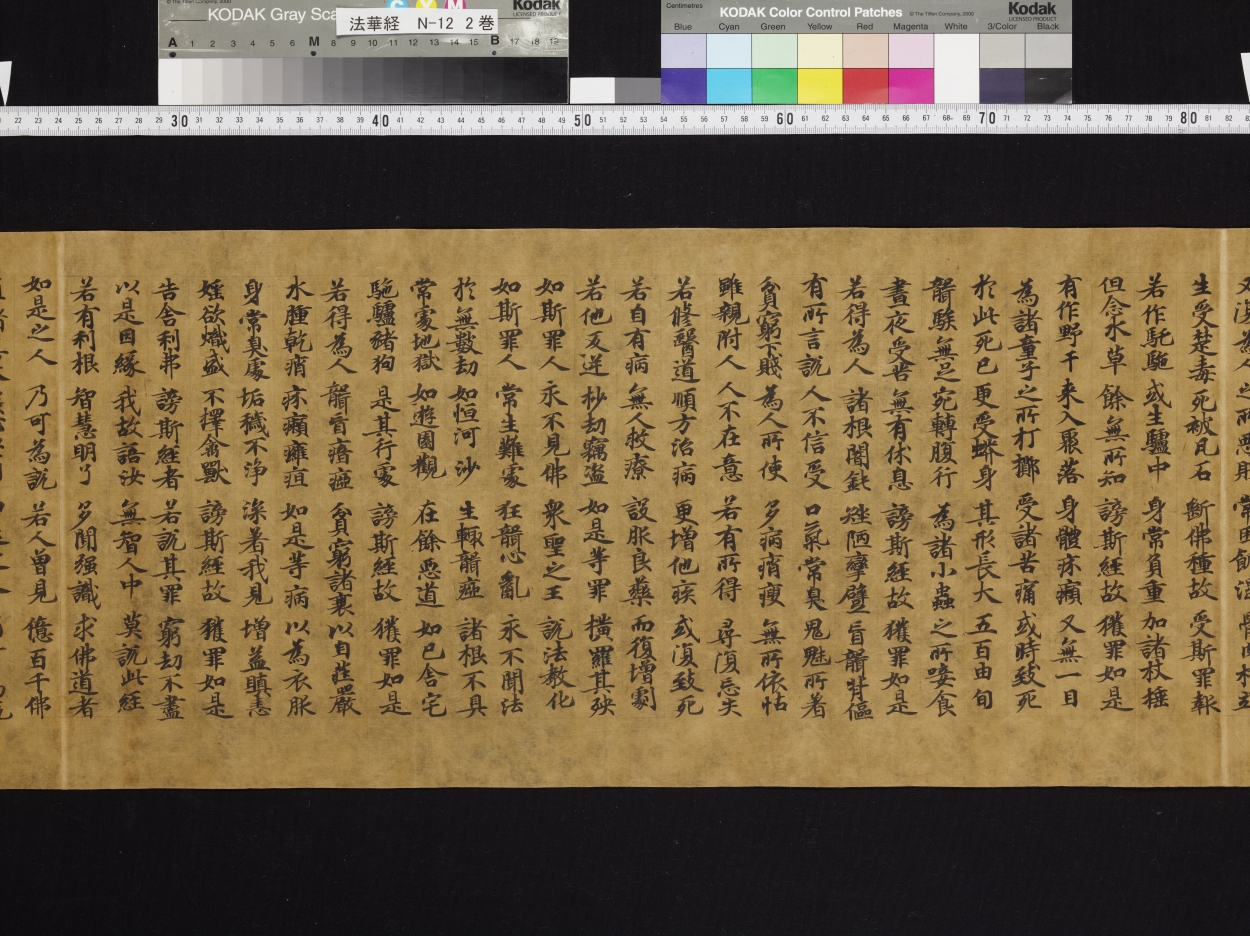 © The Tiffen Company, 2000
KODAK Gray Sca
C Y M
Kodak
LICENSED PRODUCT
法華経 N-12 2巻
A 1 2 3 4 5 6 M 8 9 10 11 12 13 14 15 B 17 18 19
Centimetres
KODAK Color Control Patches
© The Tiffen Company, 2000
Kodak
LICENSED PRODUCT
Blue Cyan Green Yellow Red Magenta White 3/Color Black
22 23 24 25 26 27 28 29 30 31 32 33 34 35 36 37 38 39 40 41 42 43 44 45 46 47 48 49 50 51 52 53 54 55 56 57 58 59 60 61 62 63 64 65 66 67 68 69 70 71 72 73 74 75 76 77 78 79 80 81 82
為人 之所惡
生受楚毒 死被瓦石 斷佛種故 受斯罪報
若作馲駞 或生驢中 身常負重 加諸杖捶
但念水草 餘無所知 謗斯經故 獲罪如是
有作野干 来入聚落 身體疥癩 又無一目
為諸童子 之所打擲 受諸苦痛 或時致死
於此死已 更受蟒身 其形長大 五百由旬
聾騃無足 宛轉腹行 為諸小蟲 之所唼食
晝夜受苦 無有休息 謗斯經故 獲罪如是
若得為人 諸根闇鈍 矬陋攣躄 盲聾背傴
有所言説 人不信受 口氣常臭 鬼魅所著
貧窮下賤 為人所使 多病痟瘦 無所依怙
雖親附人 人不在意 若有所得 尋復忘失
若修醫道 順方治病 更增他疾 或復致死
若自有病 無人救療 設服良藥 而復增劇
若他反逆 抄劫竊盗 如是等罪 橫羅其殃
如斯罪人 永不見佛 衆聖之王 説法教化
如斯罪人 常生難處 狂聾心亂 永不聞法
於無數劫 如恒河沙 生輙聾瘂 諸根不具
常處地獄 如遊園觀 在餘惡道 如己舍宅
駞驢猪狗 是其行處 謗斯經故 獲罪如是
若得為人 聾盲瘖瘂 貧窮諸衰 以自莊嚴
水腫乾痟 疥癩癰疽 如是等病 以為衣服
身常臭處 垢穢不淨 深著我見 增益瞋恚
婬欲熾盛 不擇禽獸 謗斯經故 獲罪如是
告舍利弗 謗斯經者 若説其罪 窮劫不盡
以是因緣 我故語汝 無智人中 莫説此經
若有利根 智慧明了 多聞强識 求佛道者
如是之人 乃可為説 若人曽見 億百千佛